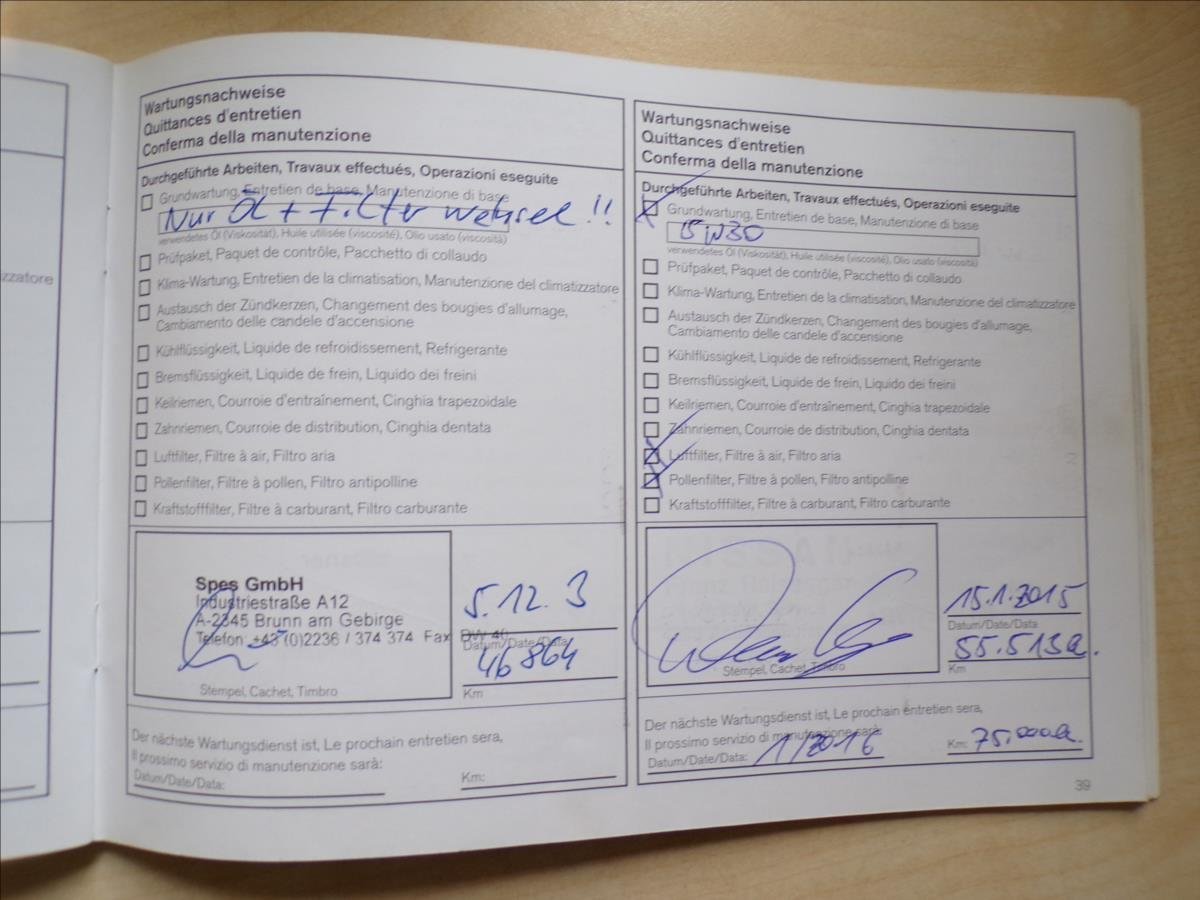 zzatore
Wartungsnachweise
Quittances d'entretien
Conferma della manutenzione
Durchgeführte Arbeiten, Travaux effectués, Operazioni eseguite
Grundwartung, Entretien de base, Manutenzione di base
Nur Öl + Filter wechsel !!
verwendetes Öl (Viskosität), Huile utilisée (viscosité), Olio usato (viscosità)
Prüfpaket, Paquet de contrôle, Pacchetto di collaudo
Klima-Wartung, Entretien de la climatisation, Manutenzione del climatizzatore
Austausch der Zündkerzen, Changement des bougies d'allumage,
Cambiamento delle candele d'accensione
Kühlflüssigkeit, Liquide de refroidissement, Refrigerante
Bremsflüssigkeit, Liquide de frein, Liquido dei freini
Keilriemen, Courroie d'entraînement, Cinghia trapezoidale
Zahnriemen, Courroie de distribution, Cinghia dentata
Luftfilter, Filtre à air, Filtro aria
Pollenfilter, Filtre à pollen, Filtro antipolline
Kraftstofffilter, Filtre à carburant, Filtro carburante
Spes GmbH
Industriestraße A12
A-2345 Brunn am Gebirge
Telefon: +43 (0)2236 / 374 374 Fax DW 40
Stempel, Cachet, Timbro
5.12. 3
Datum/Date/Data
46 864
Km
Der nächste Wartungsdienst ist, Le prochain entretien sera,
Il prossimo servizio di manutenzione sarà:
Datum/Date/Data:
Km:
Wartungsnachweise
Quittances d'entretien
Conferma della manutenzione
Durchgeführte Arbeiten, Travaux effectués, Operazioni eseguite
Grundwartung, Entretien de base, Manutenzione di base
5W30
verwendetes Öl (Viskosität), Huile utilisée (viscosité), Olio usato (viscosità)
Prüfpaket, Paquet de contrôle, Pacchetto di collaudo
Klima-Wartung, Entretien de la climatisation, Manutenzione del climatizzatore
Austausch der Zündkerzen, Changement des bougies d'allumage,
Cambiamento delle candele d'accensione
Kühlflüssigkeit, Liquide de refroidissement, Refrigerante
Bremsflüssigkeit, Liquide de frein, Liquido dei freini
Keilriemen, Courroie d'entraînement, Cinghia trapezoidale
Zahnriemen, Courroie de distribution, Cinghia dentata
Luftfilter, Filtre à air, Filtro aria
Pollenfilter, Filtre à pollen, Filtro antipolline
Kraftstofffilter, Filtre à carburant, Filtro carburante
Stempel, Cachet, Timbro
15.1.2015
Datum/Date/Data
55.513
Km
Der nächste Wartungsdienst ist, Le prochain entretien sera,
Il prossimo servizio di manutenzione sarà:
Datum/Date/Data: 1/2016
Km: 75.000
39